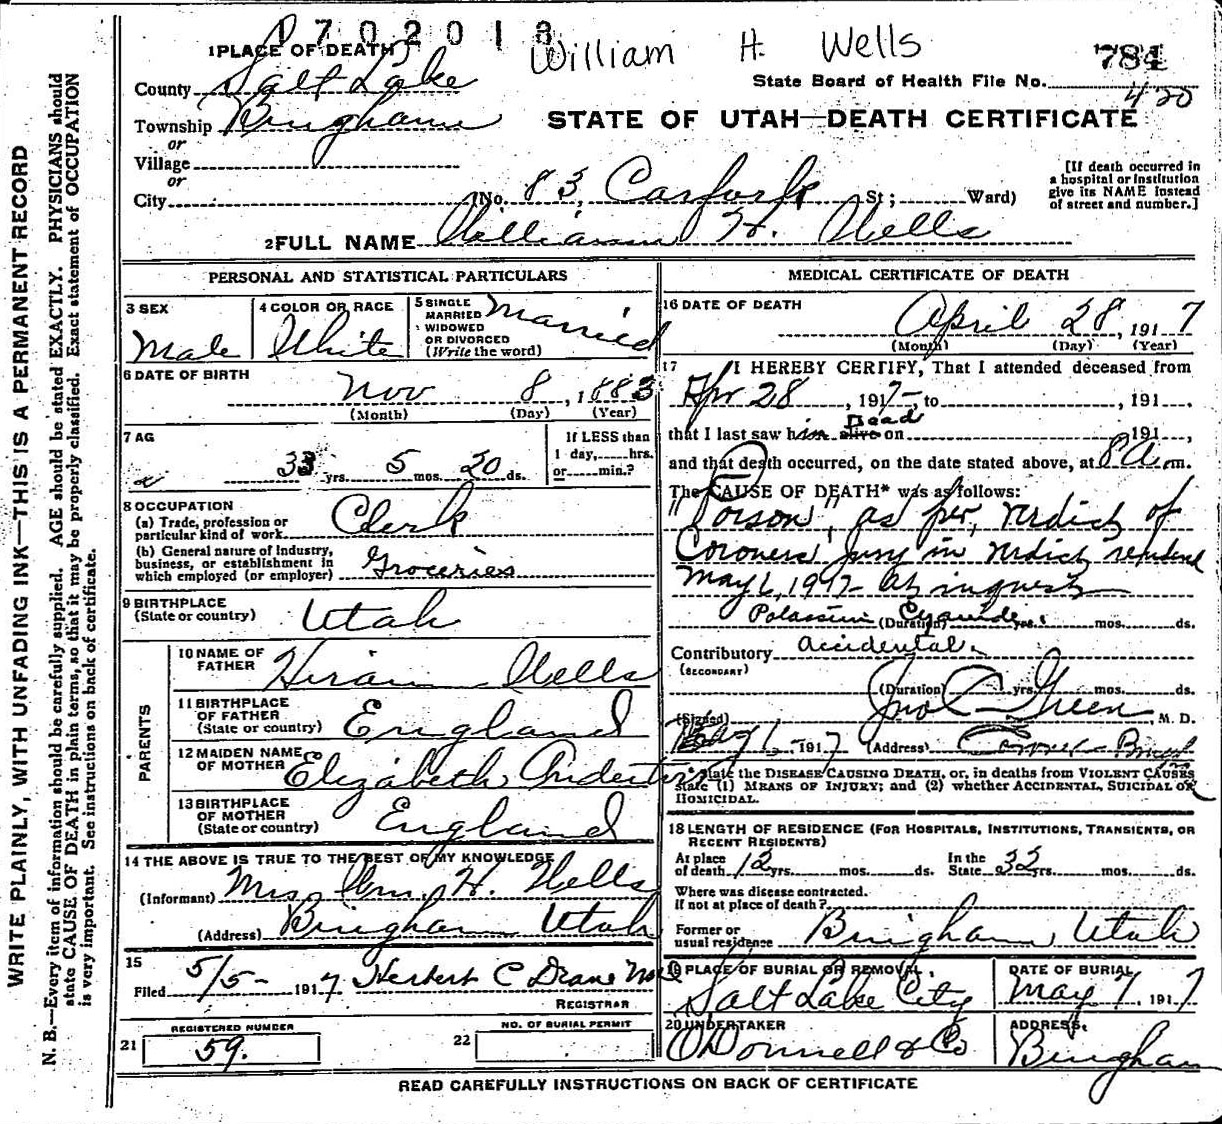 1702013
William H. Wells
784
1 PLACE OF DEATH
State Board of Health File No.
420
County Salt Lake
Township Bingham
STATE OF UTAH—DEATH CERTIFICATE
or
Village
or
City
(No. 83, Carfork St; Ward)
[If death occurred in
a hospital or institution
give its NAME instead
of street and number.]
2 FULL NAME William H. Wells
PERSONAL AND STATISTICAL PARTICULARS
3 SEX
Male
4 COLOR OR RACE
White
5 SINGLE
MARRIED
WIDOWED
OR DIVORCED
(Write the word)
Married
6 DATE OF BIRTH
Nov 8, 1883
(Month) (Day) (Year)
7 AG
33 yrs. 5 mos. 20 ds.
If LESS than
1 day,......hrs.
or......min.?
8 OCCUPATION
(a) Trade, profession or
particular kind of work
Clerk
(b) General nature of Industry,
business, or establishment in
which employed (or employer)
Groceries
9 BIRTHPLACE
(State or country)
Utah
PARENTS
10 NAME OF
FATHER
Hiram Wells
11 BIRTHPLACE
OF FATHER
(State or country)
England
12 MAIDEN NAME
OF MOTHER
Elizabeth
13 BIRTHPLACE
OF MOTHER
(State or country)
England
14 THE ABOVE IS TRUE TO THE BEST OF MY KNOWLEDGE
(Informant) Mrs. Wm. H. Wells
(Address) Bingham Utah
15
Filed 5/5- 1917 Herbert C Drane
REGISTRAR
REGISTERED NUMBER
21 59.
NO. OF BURIAL PERMIT
22
MEDICAL CERTIFICATE OF DEATH
16 DATE OF DEATH
April 28, 1917
(Month) (Day) (Year)
17 I HEREBY CERTIFY, That I attended deceased from
Apr 28, 1917, to , 191 ,
Dead
that I last saw him alive on 191 ,
and that death occurred, on the date stated above, at 8 A. m.
The CAUSE OF DEATH* was as follows:
"Poison", as per, verdict of
Coroners Jury in verdict rendered
May 6, 1917 at inquest
Potassium Cyanide.
(Duration) yrs. mos. ds.
Contributory Accidental.
(SECONDARY)
(Duration) yrs. mos. ds.
(Signed) Jno C Green M. D.
1917 (Address)
* State the DISEASE CAUSING DEATH, or, in deaths from VIOLENT CAUSES
state (1) MEANS OF INJURY; and (2) whether ACCIDENTAL, SUICIDAL OR
HOMICIDAL.
18 LENGTH OF RESIDENCE (FOR HOSPITALS, INSTITUTIONS, TRANSIENTS, OR
RECENT RESIDENTS)
At place
of death 12 yrs. mos. ds.
In the
State 33 yrs. mos. ds.
Where was disease contracted.
If not at place of death?
Former or
usual residence Bingham, Utah
19 PLACE OF BURIAL OR REMOVAL.
Salt Lake City
DATE OF BURIAL
May 7, 1917
20 UNDERTAKER
O'Donnell & Co
ADDRESS.
Bingham
READ CAREFULLY INSTRUCTIONS ON BACK OF CERTIFICATE
WRITE PLAINLY, WITH UNFADING INK—THIS IS A PERMANENT RECORD
N. B.—Every item of information should be carefully supplied. AGE should be stated EXACTLY. PHYSICIANS should
state CAUSE OF DEATH in plain terms, so that it may be properly classified. Exact statement of OCCUPATION
is very important. See instructions on back of certificate.